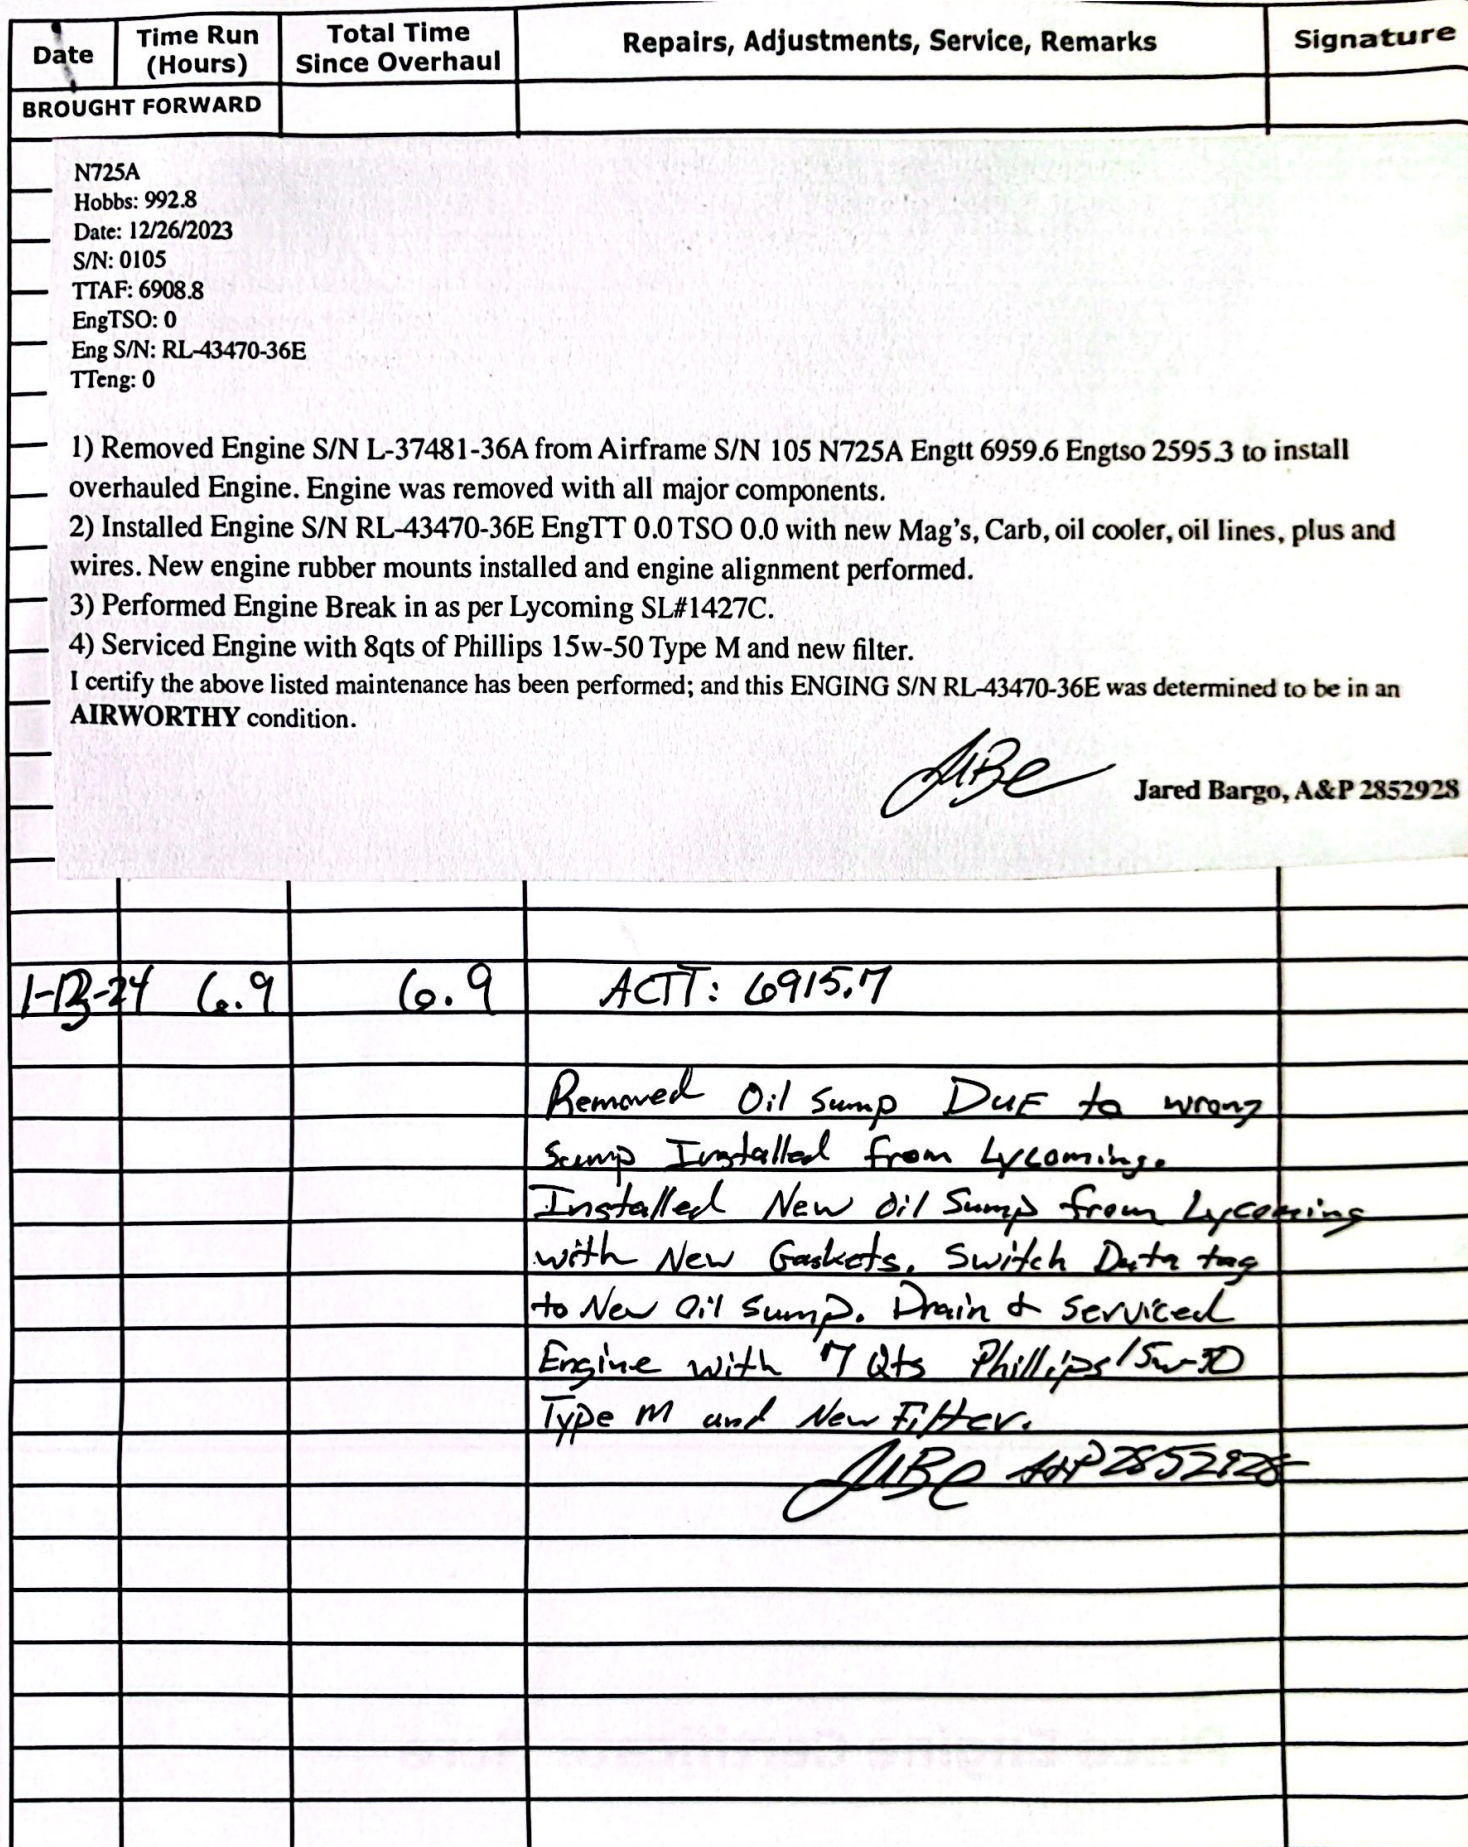 Date
Time Run
(Hours)
Total Time
Since Overhaul
Repairs, Adjustments, Service, Remarks
Signature
BROUGHT FORWARD
N725A
Hobbs: 992.8
Date: 12/26/2023
S/N: 0105
TTAF: 6908.8
EngTSO: 0
Eng S/N: RL-43470-36E
TTeng: 0
1) Removed Engine S/N L-37481-36A from Airframe S/N 105 N725A Engtt 6959.6 Engtso 2595.3 to install
overhauled Engine. Engine was removed with all major components.
2) Installed Engine S/N RL-43470-36E EngTT 0.0 TSO 0.0 with new Mag's, Carb, oil cooler, oil lines, plus and
wires. New engine rubber mounts installed and engine alignment performed.
3) Performed Engine Break in as per Lycoming SL#1427C.
4) Serviced Engine with 8qts of Phillips 15w-50 Type M and new filter.
I certify the above listed maintenance has been performed; and this ENGING S/N RL-43470-36E was determined to be in an
AIRWORTHY condition.
Jared Bargo, A&P 2852928
1-13-24 6.9 6.9 ACTT: 6915.7
Removed Oil Sump DUE to wrong
Sump Installed from Lycoming.
Installed New Oil Sump from Lycoming
with New Gaskets. Switch Data tag
to New Oil Sump. Drain & Serviced
Engine with 7 Qts Phillips 15w-50
Type M and New Filter.
A&P 2852928